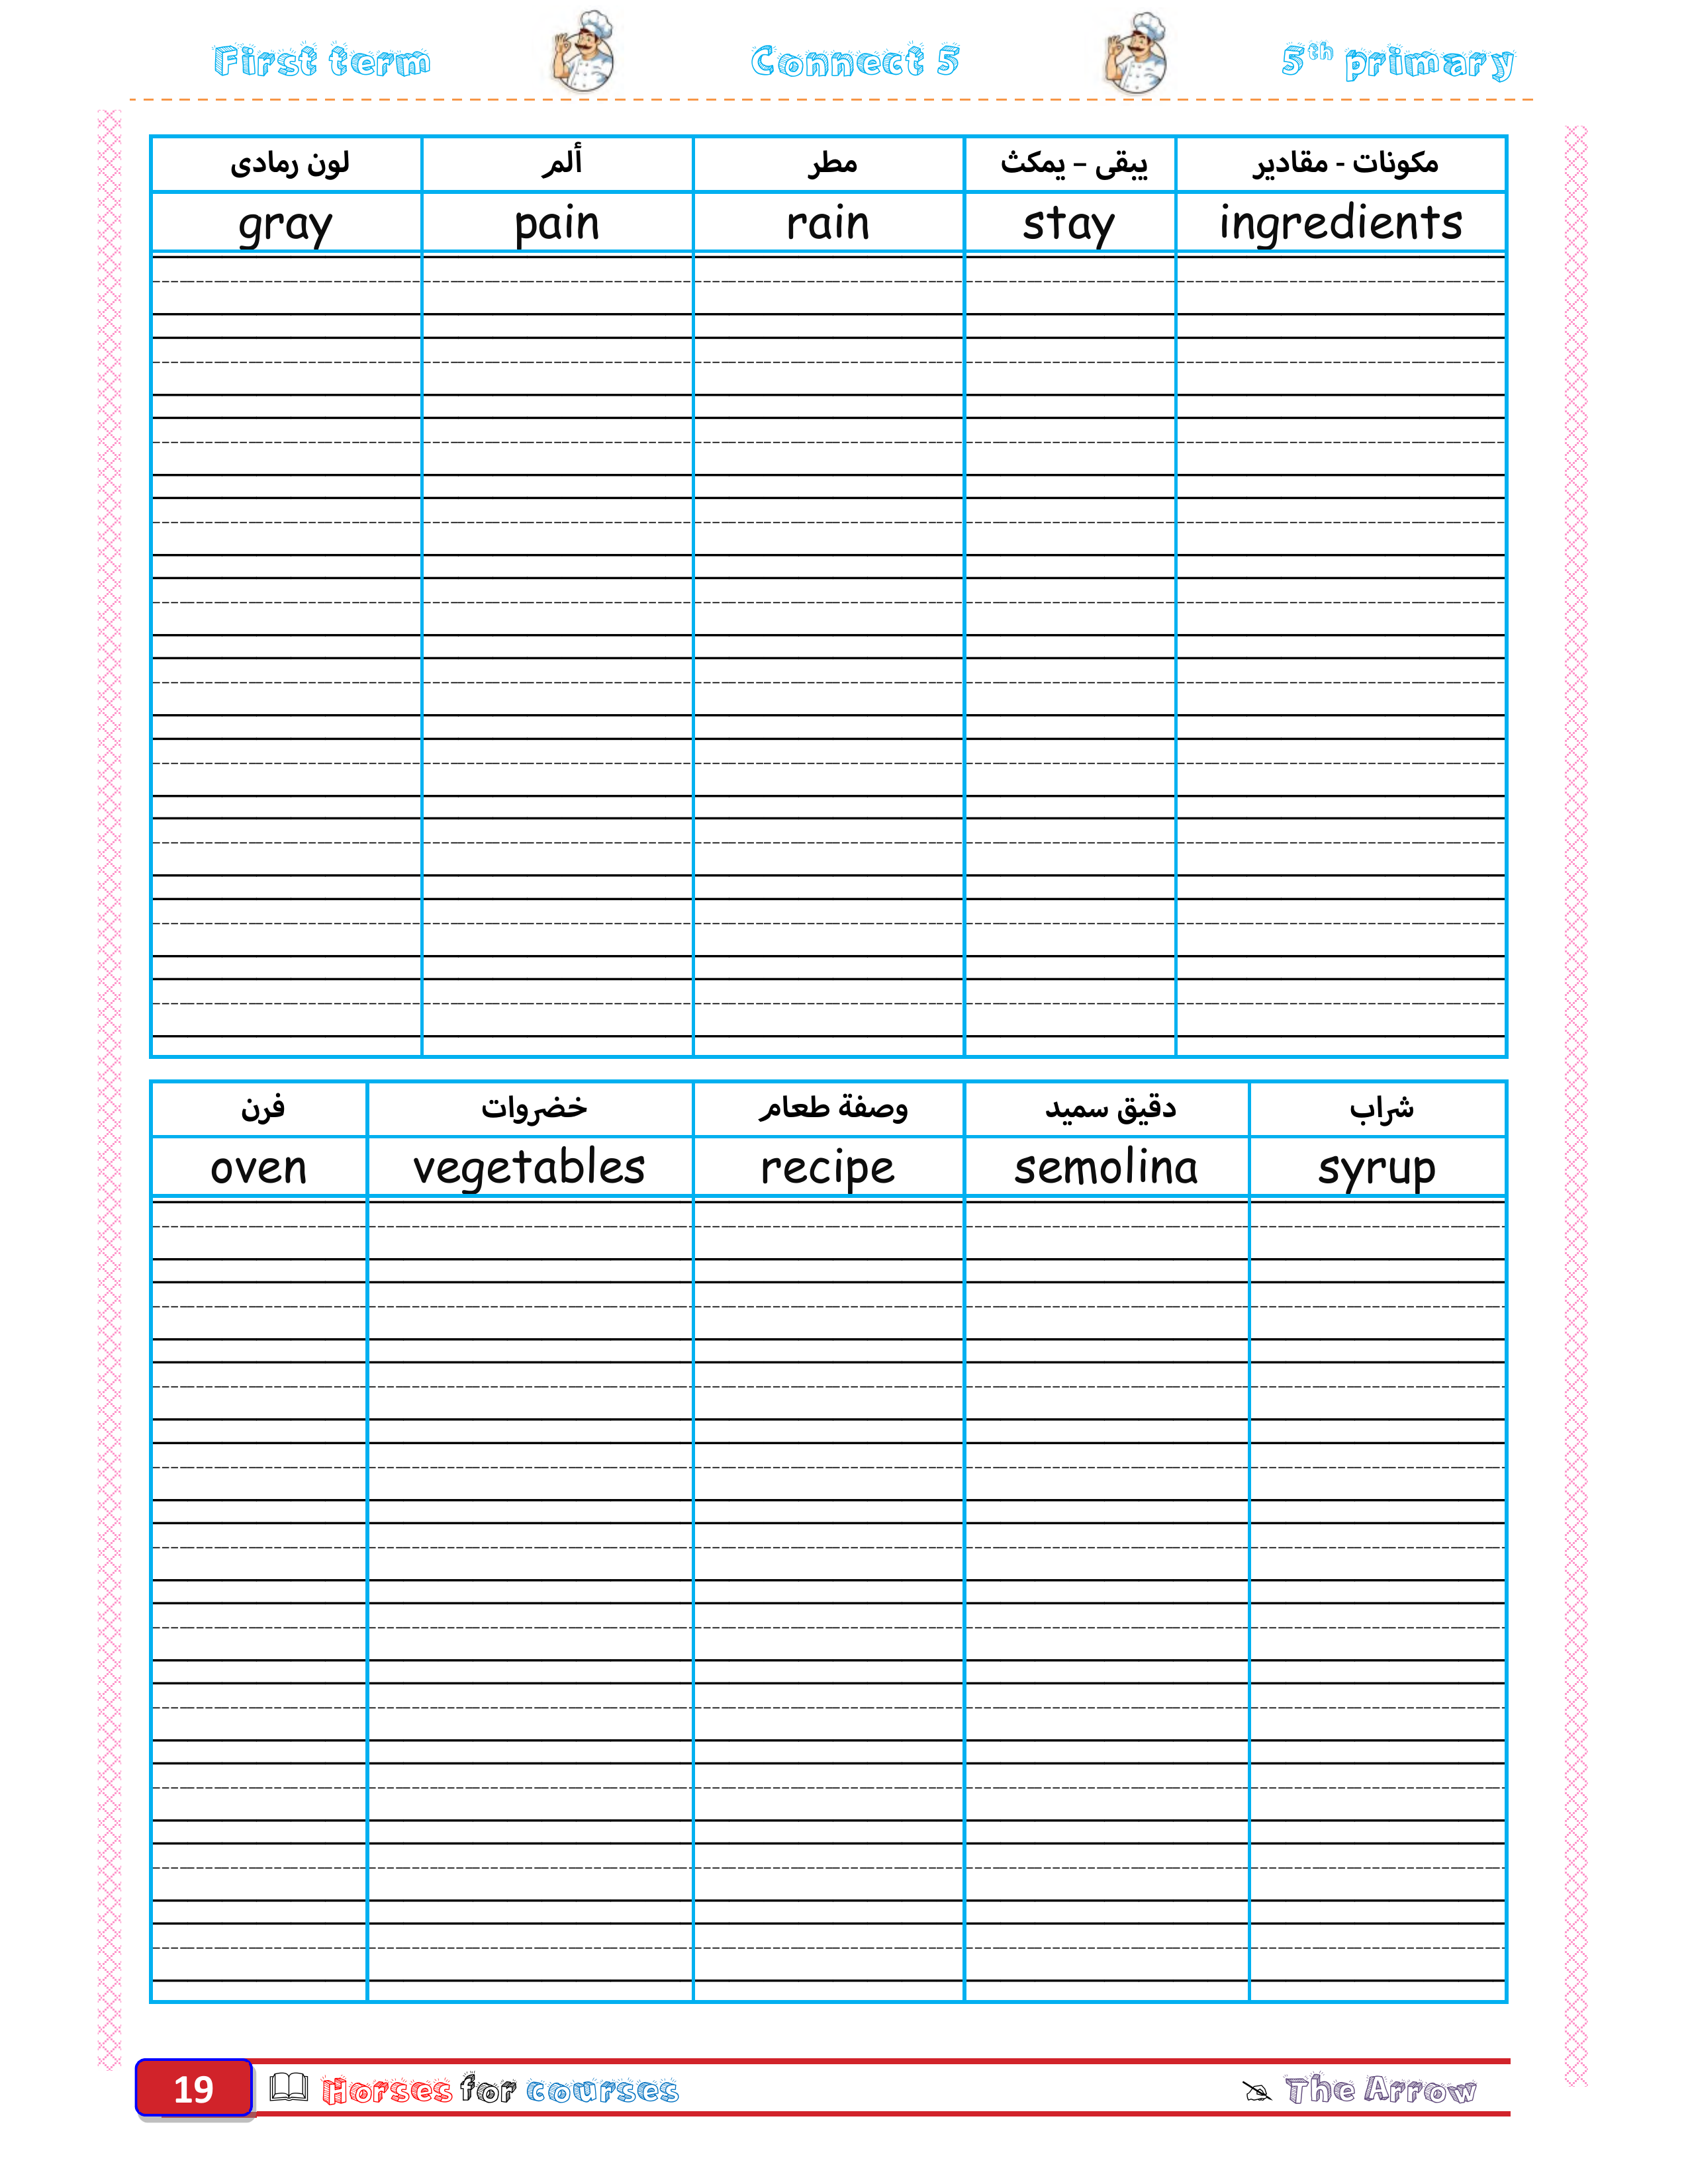 First term Connect 5 5th primary
لون رمادى ألم مطر يبقى – يمكث مكونات - مقادير
gray pain rain stay ingredients
فرن خضروات وصفة طعام دقيق سميد شراب
oven vegetables recipe semolina syrup
19 Horses for courses The Arrow